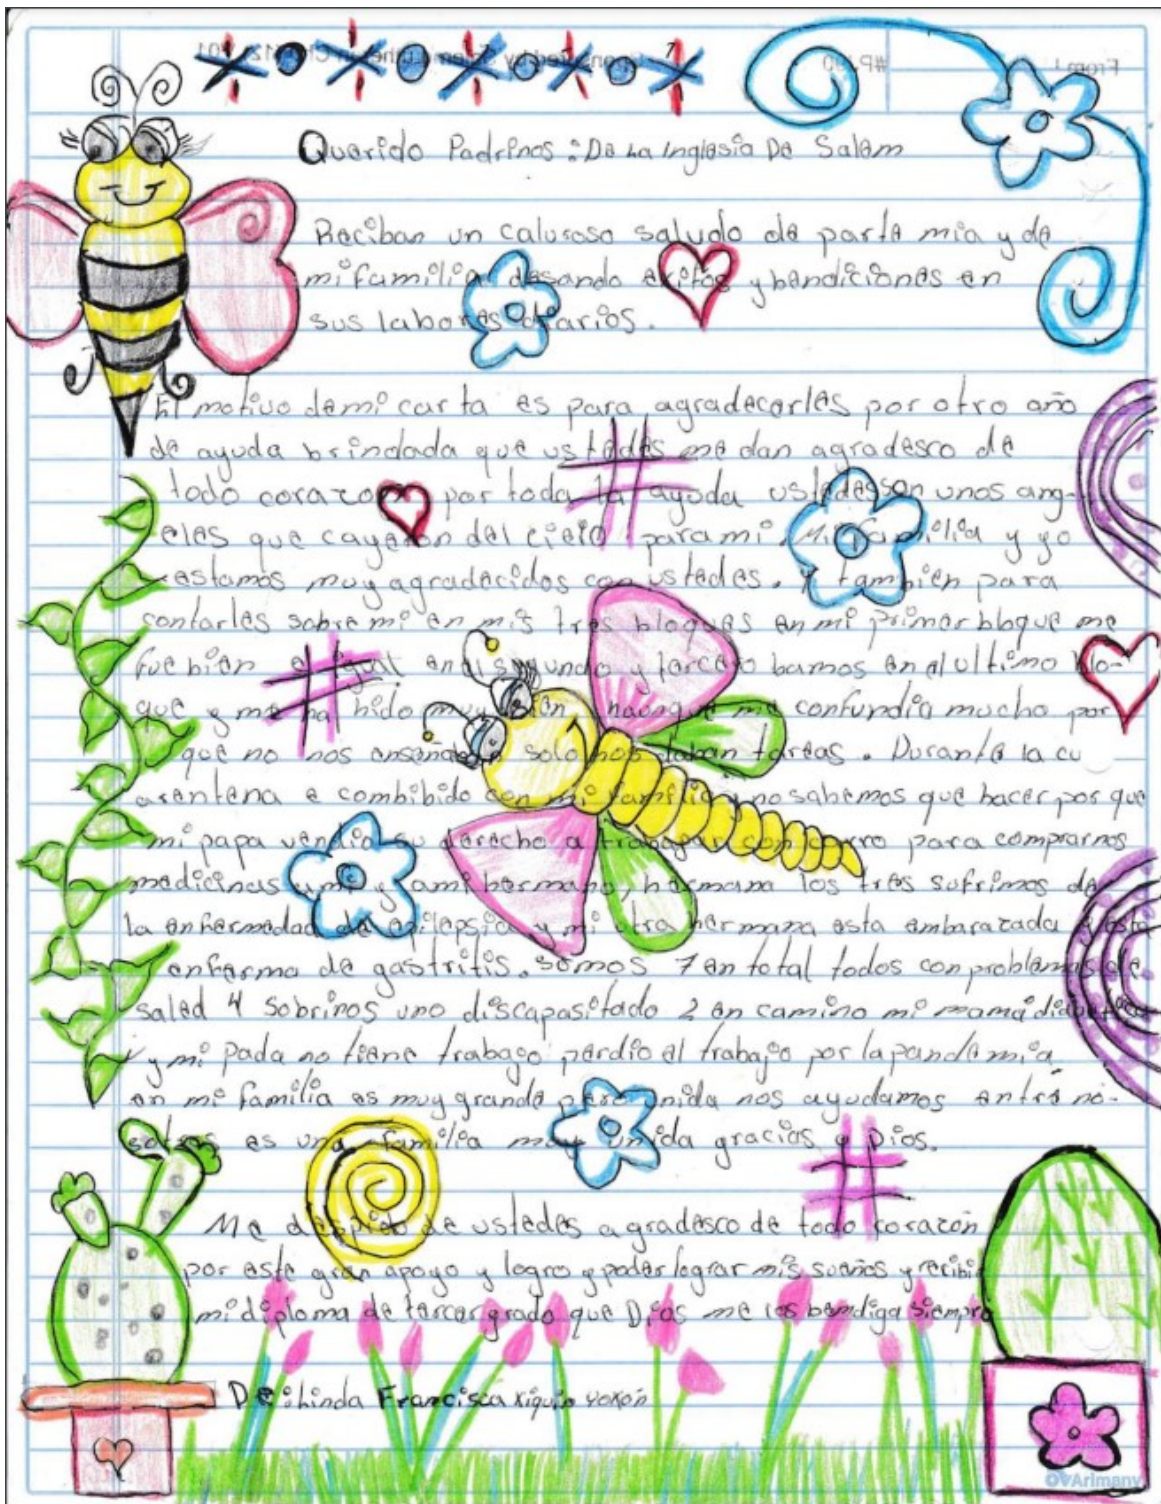 Querido Padrinos: De La Inglesia De Salem
Reciban un caluroso saludo de parte mia y de
mi familia desando exitos y bendiciones en
sus labores diarios.
El motivo demi carta es para agradecerles por otro año
de ayuda brindada que ustedes me dan agradesco de
todo corazon por toda la ayuda ustedes son unos ang-
eles que cayeron del cielo para mi. Mi familia y yo
estamos muy agradecidos con ustedes. y tambien para
contarles sobre mi en mis tres bloques en mi primer bloque me
fue bien e igual en el segundo y tercero bamos en el ultimo blo-
que y me ha hido muy bien haunque me confundia mucho por
que no nos enseñaban solo nos daban tareas. Durante la cu
arentena e combibido con mi familia y no sabemos que hacer por que
mi papa vendio su derecho a trabagar con carro para comprarnos
medicinas a mi y ami hermano, hermana los tres sufrimos de
la enfermedad de epilepsia y mi otra hermana esta embarazada y esta
enferma de gastritis. somos 7 en total todos con problemas de
salud 4 sobrinos uno discapasitado 2 en camino mi mama diabetica
y mi pada no tiene trabago perdio el trabajo por la pandemia
en mi familia es muy grande pero unida nos ayudamos entre no-
sotros es una familia muy unida gracias a Dios.
Me despido de ustedes agradesco de todo corazón
por este gran apoyo y logro y poder lograr mis sueños y recibir
mi diploma de tercer grado que Dios me los bendiga siempre
De: Linda Francisca Xiquin Yoxón
Arimany